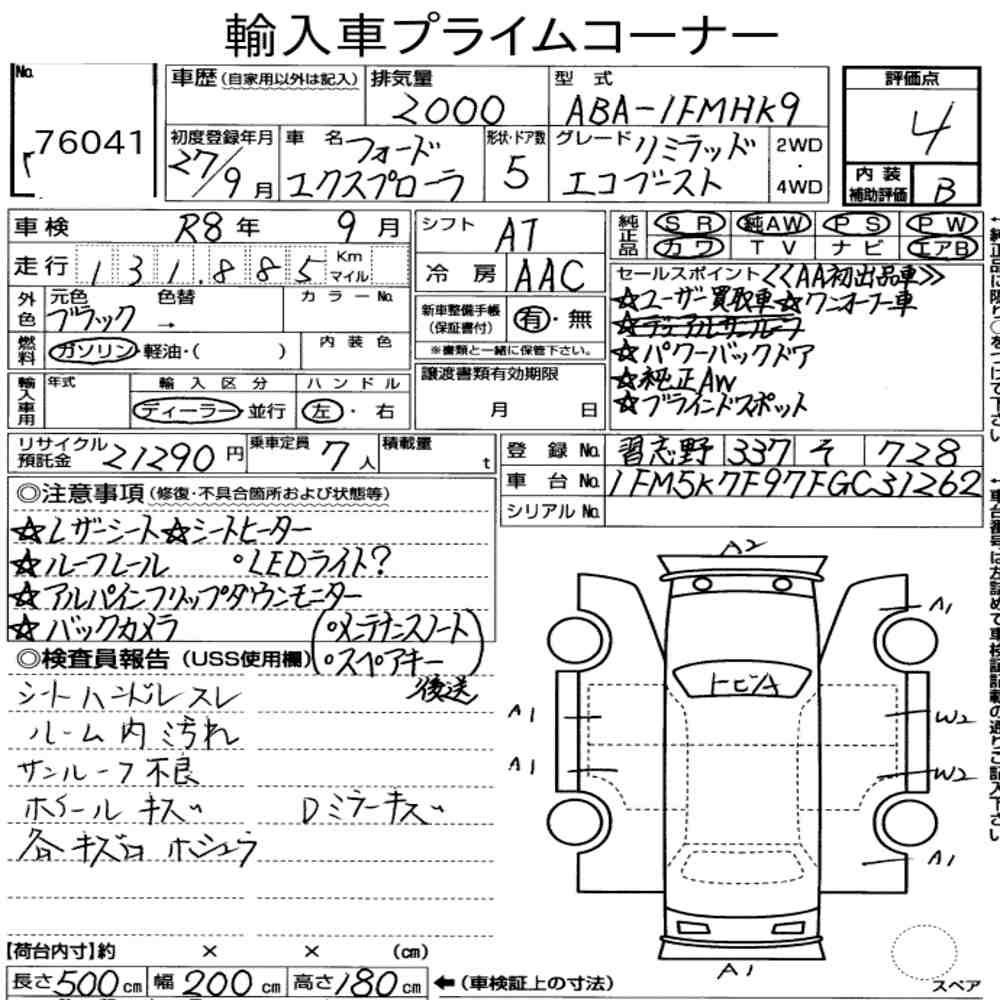 輸入車プライムコーナー
No.
76041
車歴 (自家用以外は記入)
排気量
2000
型 式
ABA-1FMHK9
評価点
4
初度登録年月
27/9月
車 名
フォード
エクスプローラ
形状・ドア数
5
グレード
リミテッド
エコブースト
2WD
・
4WD
内 装
補助評価
B
車検 R8年 9月
走行 131,885 Km
マイル
シフト AT
冷 房 AAC
純正品 SR 純AW PS PW
カワ TV ナビ エアB
外色 元色 色替 カラーNo.
ブラック →
燃料 ガソリン・軽油・( ) 内装色
新車整備手帳
(保証書付) 有・無
※書類と一緒に保管下さい。
セールスポイント <<AA初出品車>>
☆ユーザー買取車☆ワンオーナー車
☆デュアルサンルーフ
☆パワーバックドア
☆純正AW
☆ブラインドスポット
輸入車用 年式 輸入区分 ハンドル
ディーラー・並行 左・右
譲渡書類有効期限
月 日
リサイクル
預託金 21290円
乗車定員 7人
積載量 t
登 録 No. 習志野 337 そ 728
車 台 No. 1FM5K7F97FGC31262
シリアルNo.
◎注意事項 (修復・不具合箇所および状態等)
☆レザーシート☆シートヒーター
☆ルーフレール °LEDライト?
☆アルパインフリップダウンモニター
☆バックカメラ
(°メンテナンスノート
°スペアキー)
後送
◎検査員報告 (USS使用欄)
シート ハンドル スレ
ルーム内 汚れ
サンルーフ不良
ホイール キズ Dミラーキズ
各キズ凹 ホシュウ
A2
A1
トビA
A1
W2
A1
W2
A1
A1
スペア
【荷台内寸】約 × × (cm)
長さ500cm 幅200cm 高さ180cm ←(車検証上の寸法)